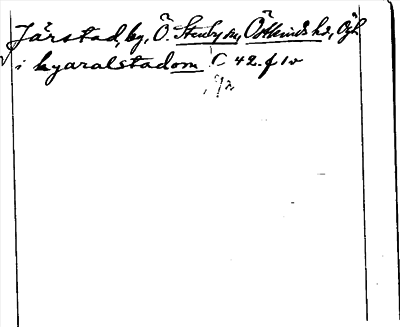 Järstad, by, Ö. Stenby sn, Östkinds hd, Ögl.
i hyaralstadom C 42 f 1v